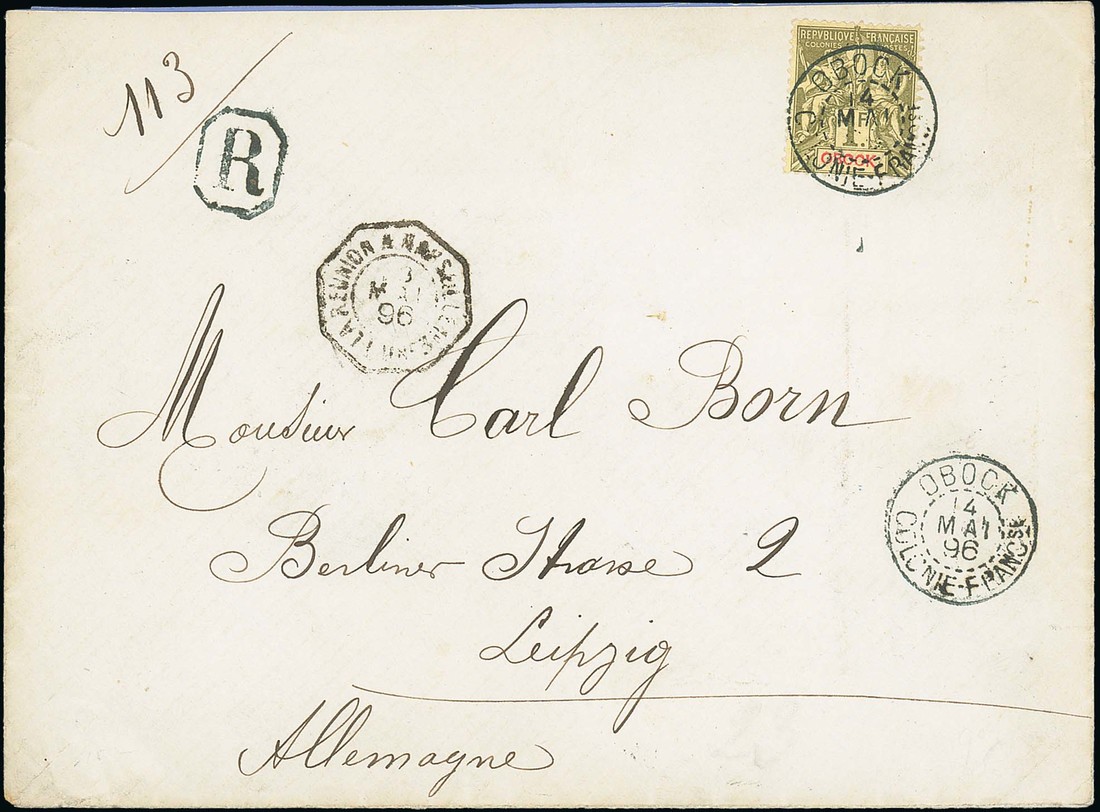 113
R
REPVBLIQVE FRANÇAISE
COLONIES POSTES
1F
OBOCK
OBOCK
14
MAI
COLONIE-FRANCSE
LA REUNION A MARSEILLE
MAI
96
Monsieur Carl Born
OBOCK
14
MAI
96
COLONIE-FRANCSE
Berliner Strasse 2
Leipzig
Allemagne